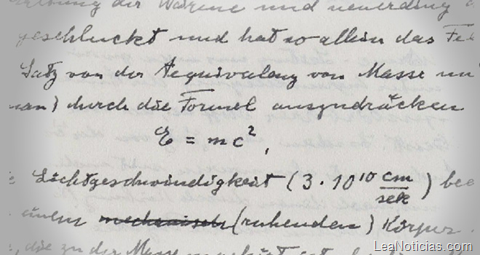 der Wärme und neuerding
geschluckt und hat so allein das
Satz von der Aequivalenz von Masse
man) durch die Formel auszudrücken
E = mc²,
Lichtgeschwindigkeit (3 . 10¹⁰ cm/sek)
einem mechanisch (ruhenden) Körper
die zu der Masse
LeaNoticias.com